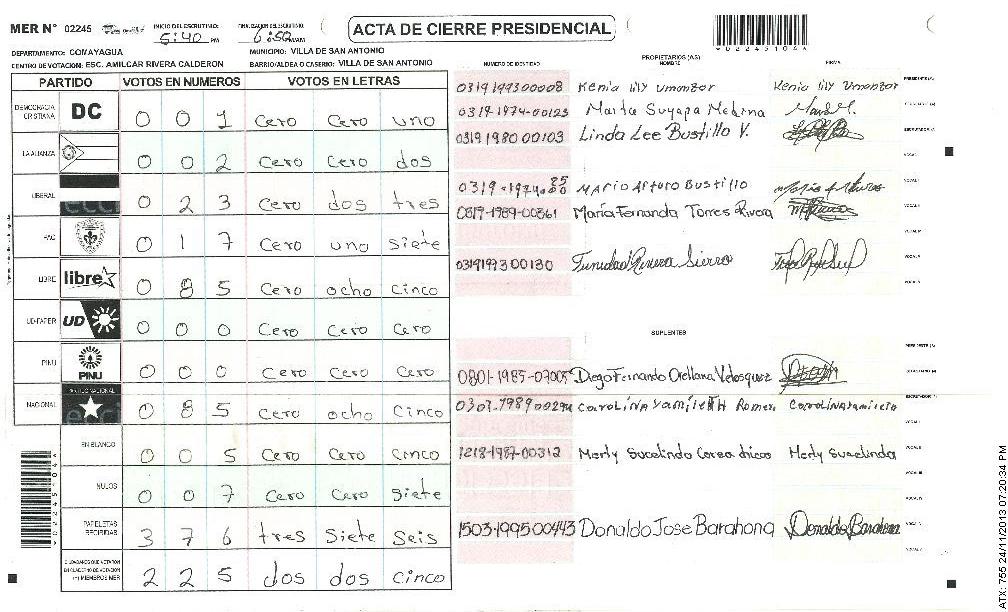 MER N° 02245 INICIO DEL ESCRUTINIO: 5:40 PM FINALIZACION DEL ESCRUTINIO: 6:50 PM/AM ACTA DE CIERRE PRESIDENCIAL
*02245104A*
DEPARTAMENTO: COMAYAGUA MUNICIPIO: VILLA DE SAN ANTONIO
CENTRO DE VOTACION: ESC. AMILCAR RIVERA CALDERON BARRIO/ALDEA O CASERIO: VILLA DE SAN ANTONIO
PARTIDO VOTOS EN NUMEROS VOTOS EN LETRAS
DEMOCRACIA CRISTIANA DC 0 0 1 cero cero uno
LA ALIANZA 0 0 2 cero cero dos
LIBERAL 0 2 3 cero dos tres
PAC 0 1 7 cero uno siete
LIBRE libre 0 8 5 cero ocho cinco
UD-FAPER UD 0 0 0 cero cero cero
PINU PINU 0 0 0 cero cero cero
NACIONAL 0 8 5 cero ocho cinco
EN BLANCO 0 0 5 cero cero cinco
NULOS 0 0 7 cero cero siete
PAPELETAS RECIBIDAS 3 7 6 tres siete seis
CIUDADANOS QUE VOTARON EN CUADERNO DE VOTACION (+) MIEMBROS MER 2 2 5 dos dos cinco
NUMERO DE IDENTIDAD PROPIETARIOS (AS) NOMBRE FIRMA
0319199300008 Kenia lily Umanzor Kenia lily Umanzor
0319-1974-00123 Marta Suyapa Medina
0319 1980 00103 Linda Lee Bustillo V.
0319-1974 Mario Arturo Bustillo
0819-1989-00861 María Fernanda Torres Rivera
0319199300130 Trinidad Rivera Sierra
SUPLENTES
0801-1985-07005 Diego Fernando Orellana Velasquez
CAROLINA YAMILETH Romero
1218-1987-00312 Merly Sucelinda
1503-199500443 Donaldo Jose Barahona Donaldo Barahona
ATX: 755 24/11/2013 07:20:34 PM